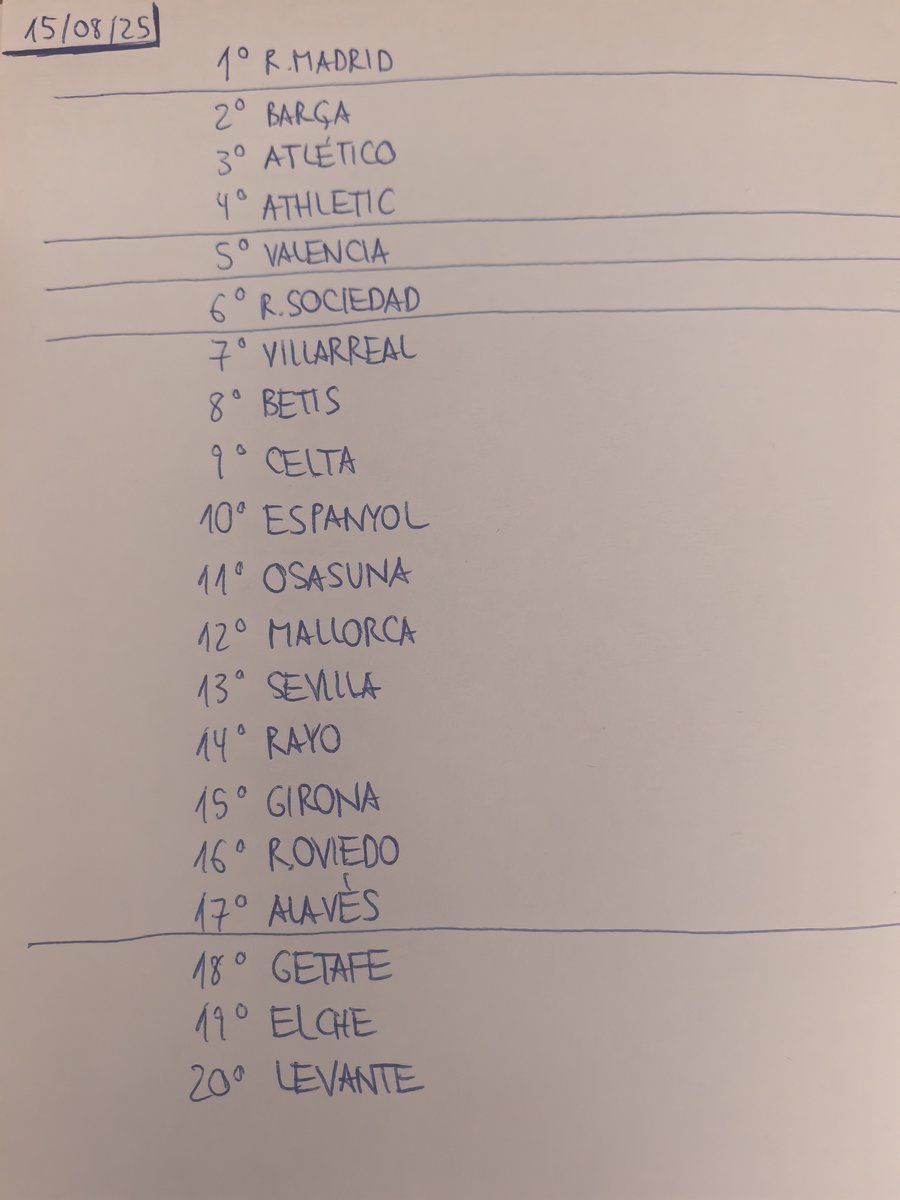 15/08/25
1º R.MADRID
2º BARÇA
3º ATLÉTICO
4º ATHLETIC
5º VALENCIA
6º R.SOCIEDAD
7º VILLARREAL
8º BETIS
9º CELTA
10º ESPANYOL
11º OSASUNA
12º MALLORCA
13º SEVILLA
14º RAYO
15º GIRONA
16º R.OVIEDO
17º ALAVÈS
18º GETAFE
19º ELCHE
20º LEVANTE